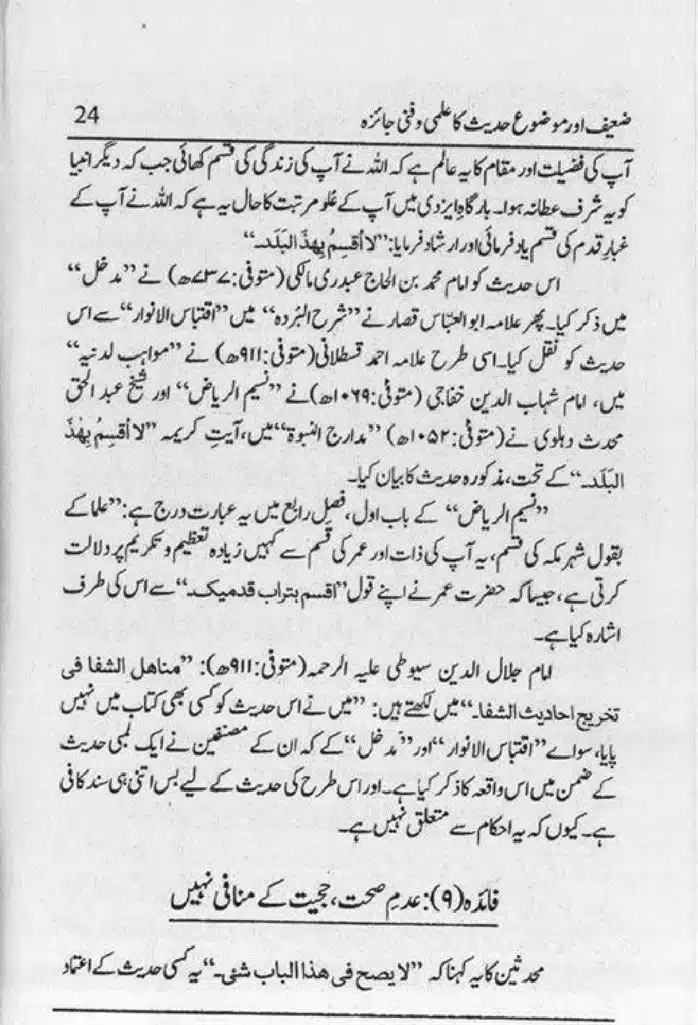 ضعیف اور موضوع حدیث کا علمی و فنی جائزہ 24
آپ کی فضیلت اور مقام کا یہ عالم ہے کہ اللہ نے آپ کی زندگی کی قسم کھائی جب کہ دیگر انبیا
کو یہ شرف عطا نہ ہوا۔ بارگاہِ ایزدی میں آپ کے علوِ مرتبت کا حال یہ ہے کہ اللہ نے آپ کے
غبارِ قدم کی قسم یاد فرمائی اور ارشاد فرمایا: ”لا اُقسِمُ بِھذَ البَلَد۔“
اس حدیث کو امام محمد بن الحاج عبدری مالکی (متوفی: ۷۳۷ھ) نے ”مدخل“
میں ذکر کیا۔ پھر علامہ ابو العبّاس قصار نے ”شرح البُردہ“ میں ”اقتباس الانوار“ سے اس
حدیث کو نقل کیا۔ اسی طرح علامہ احمد قسطلانی (متوفی: ۹۱۱ھ) نے ”مواہب لدنیہ“
میں، امام شہاب الدین خفاجی (متوفّٰی: ۱۰۶۹ھ) نے ”نسیم الریاض“ اور شیخ عبد الحق
محدث دہلوی نے (متوفّٰی: ۱۰۵۲ھ) ”مدارج النبوۃ“ میں، آیتِ کریمہ ”لا اُقسِمُ بِھٰذَ
البَلَد۔“ کے تحت، مذکورہ حدیث کا بیان کیا۔
”نسیم الریاض“ کے باب اول، فصلِ رابع میں یہ عبارت درج ہے: ”علما کے
بقول شہر مکہ کی قسم، یہ آپ کی ذات اور عمر کی قسم سے کہیں زیادہ تعظیم و تکریم پر دلالت
کرتی ہے، جیسا کہ حضرت عمر نے اپنے قول ”اقسم بتراب قدمیک۔“ سے اس کی طرف
اشارہ کیا ہے۔
امام جلال الدین سیوطی علیہ الرحمہ (متوفی: ۹۱۱ھ): ”مناھل الشفا فی
تخریج احادیث الشفا۔“ میں لکھتے ہیں: ”میں نے اس حدیث کو کسی بھی کتاب میں نہیں
پایا، سواے ”اقتباس الانوار“ اور ”مدخل“ کے کہ ان کے مصنفین نے ایک لمبی حدیث
کے ضمن میں اس واقعہ کا ذکر کیا ہے۔ اور اس طرح کی حدیث کے لیے بس اتنی ہی سند کافی
ہے۔ کیوں کہ یہ احکام سے متعلق نہیں ہے۔
فائدہ (۹): عدمِ صحت، حجیت کے منافی نہیں
محدثین کا یہ کہنا کہ ”لا یصح فی ھذا الباب شئی۔“ یہ کسی حدیث کے اعتماد